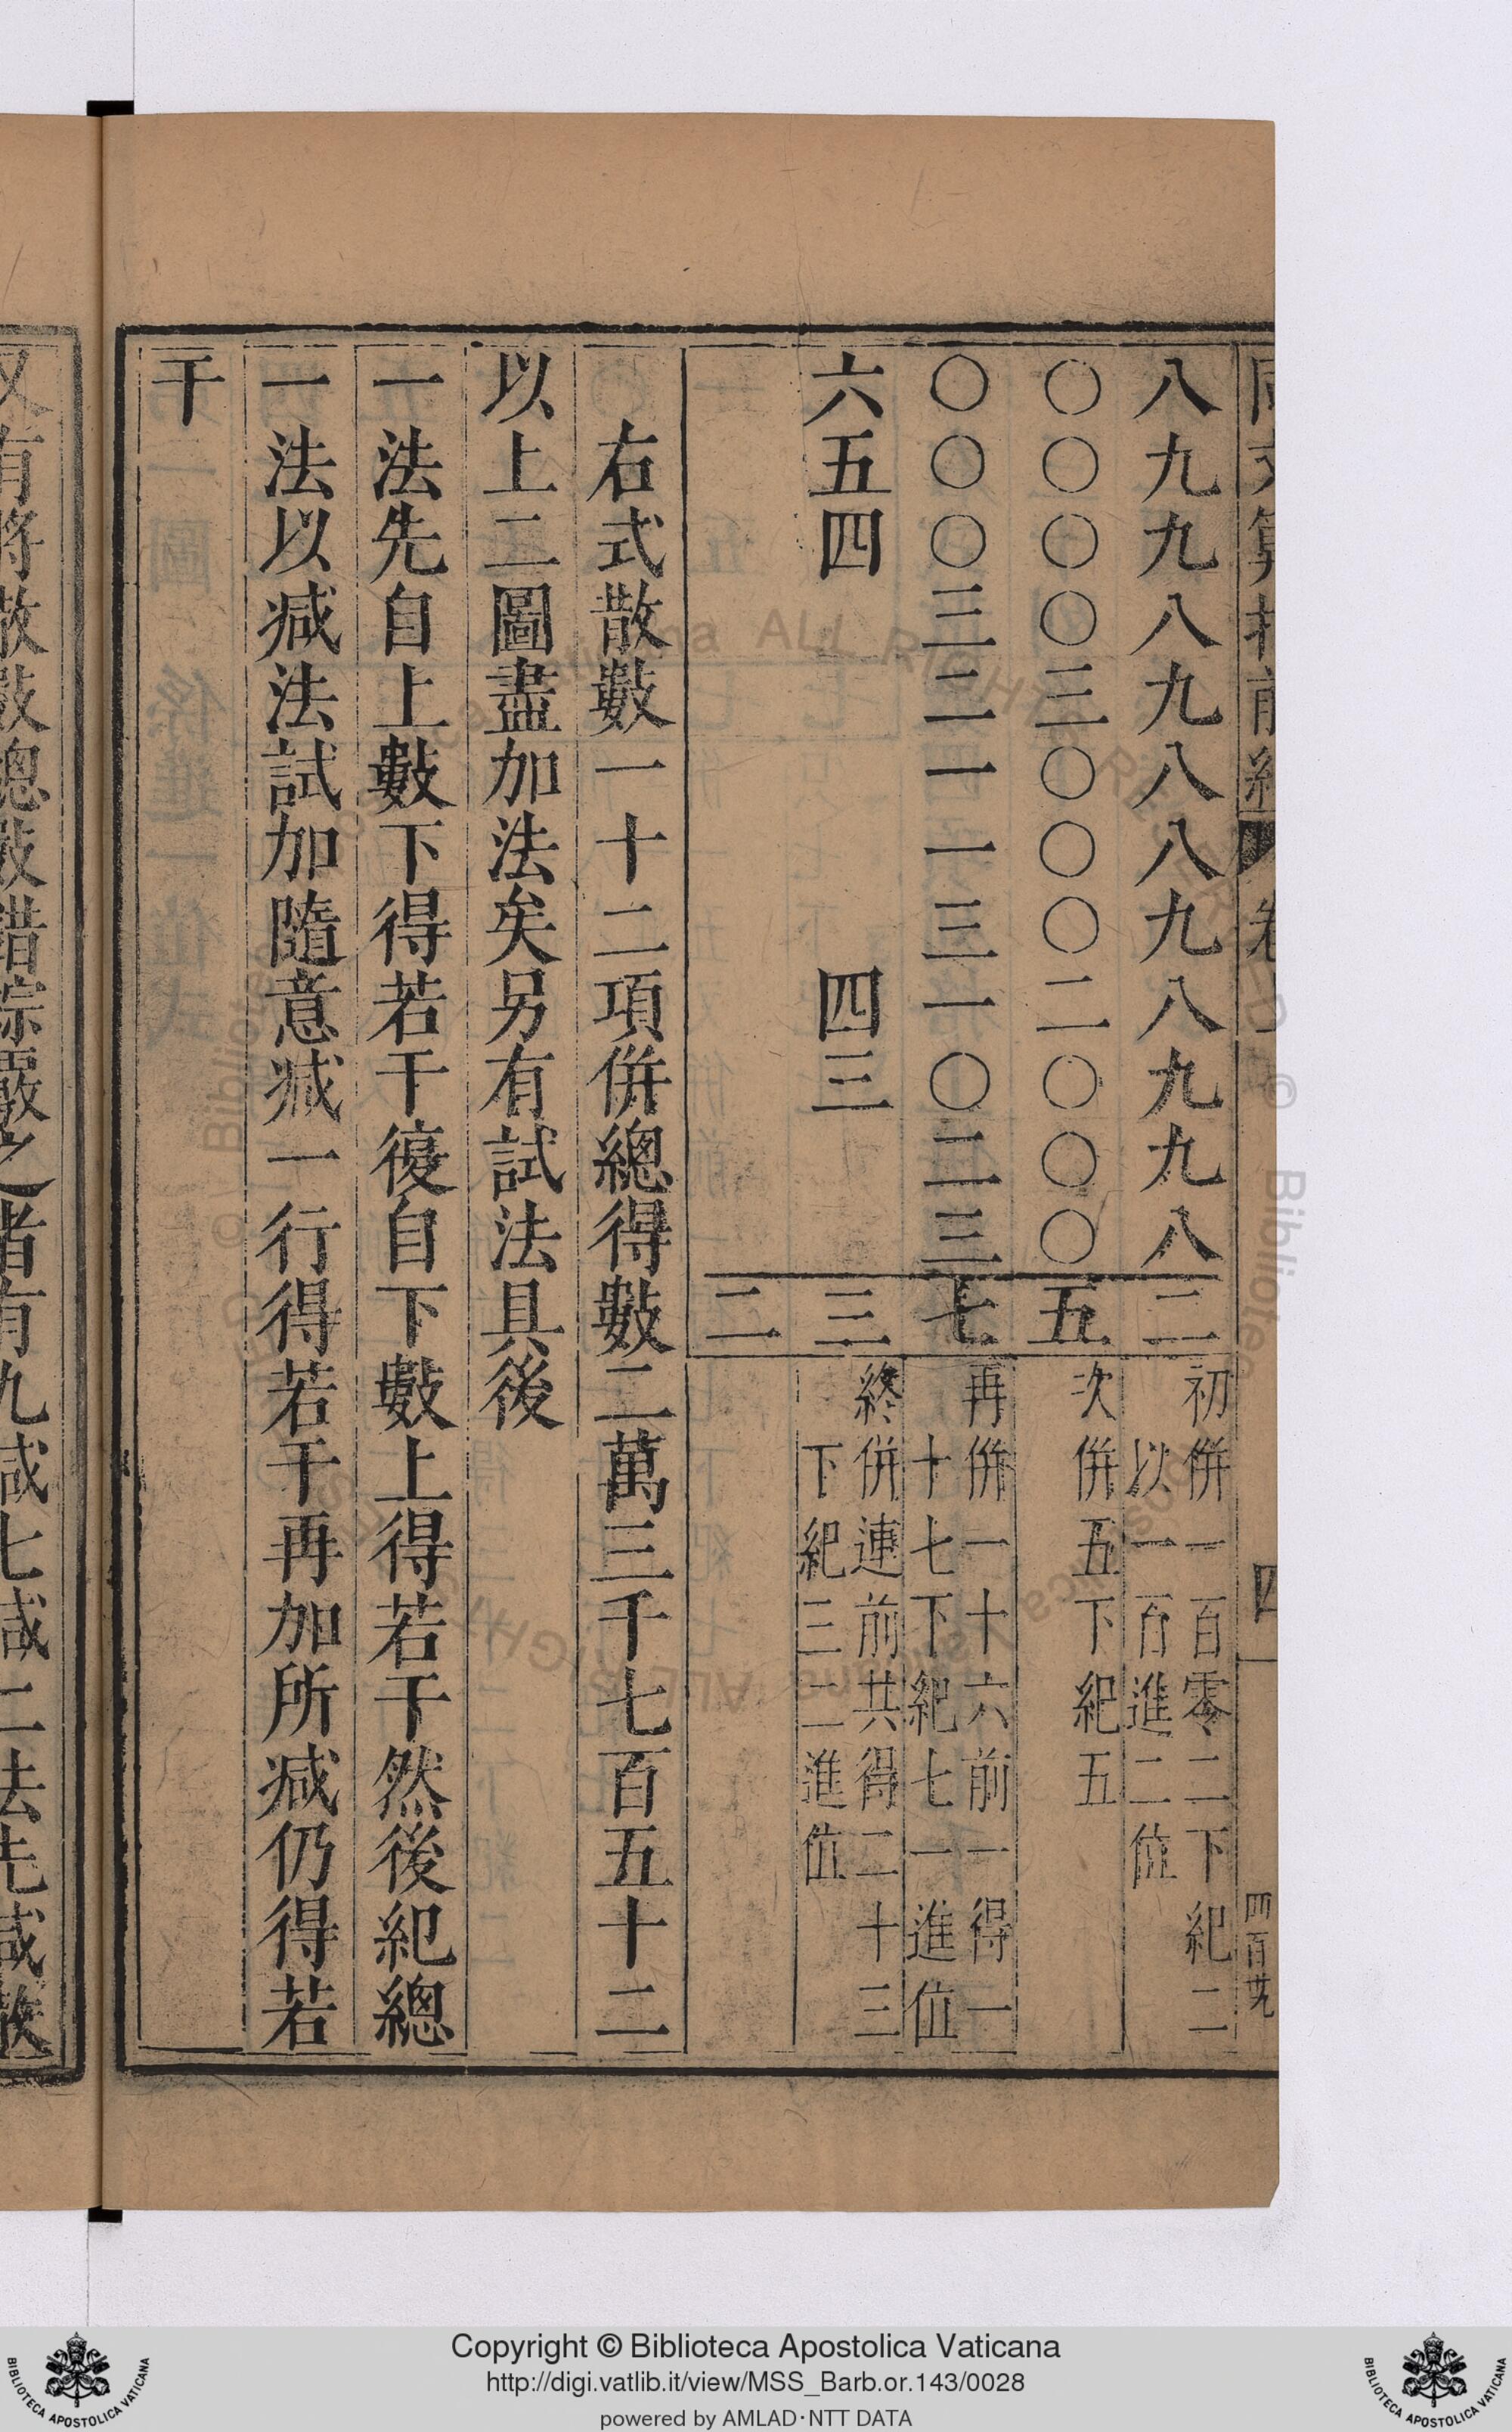 同文算指前編 卷上 四
八九九八九八八九八九九八 二
初併一百零二下紀二
以一百進二位
〇〇〇〇三〇〇〇二〇〇〇 五
次併五下紀五
〇〇〇三二一一三一〇二三 七
再併一十六前一得一
十七下紀七一進位
六五四 四三 三
終併連前共得二十三
下紀三二進位
二
右式散數一十二項併總得數二萬三千七百五十二
以上二圖盡加法矣另有試法具後
一法先自上數下得若干復自下數上得若干然後紀總
一法以減法試加隨意減一行得若干再加所減仍得若
干
又有將散數總數錯綜覈之者有九減七減二法先減散
Copyright © Biblioteca Apostolica Vaticana
http://digi.vatlib.it/view/MSS_Barb.or.143/0028
powered by AMLAD·NTT DATA
BIBLIOTECA APOSTOLICA VATICANA
BIBLIOTECA APOSTOLICA VATICANA